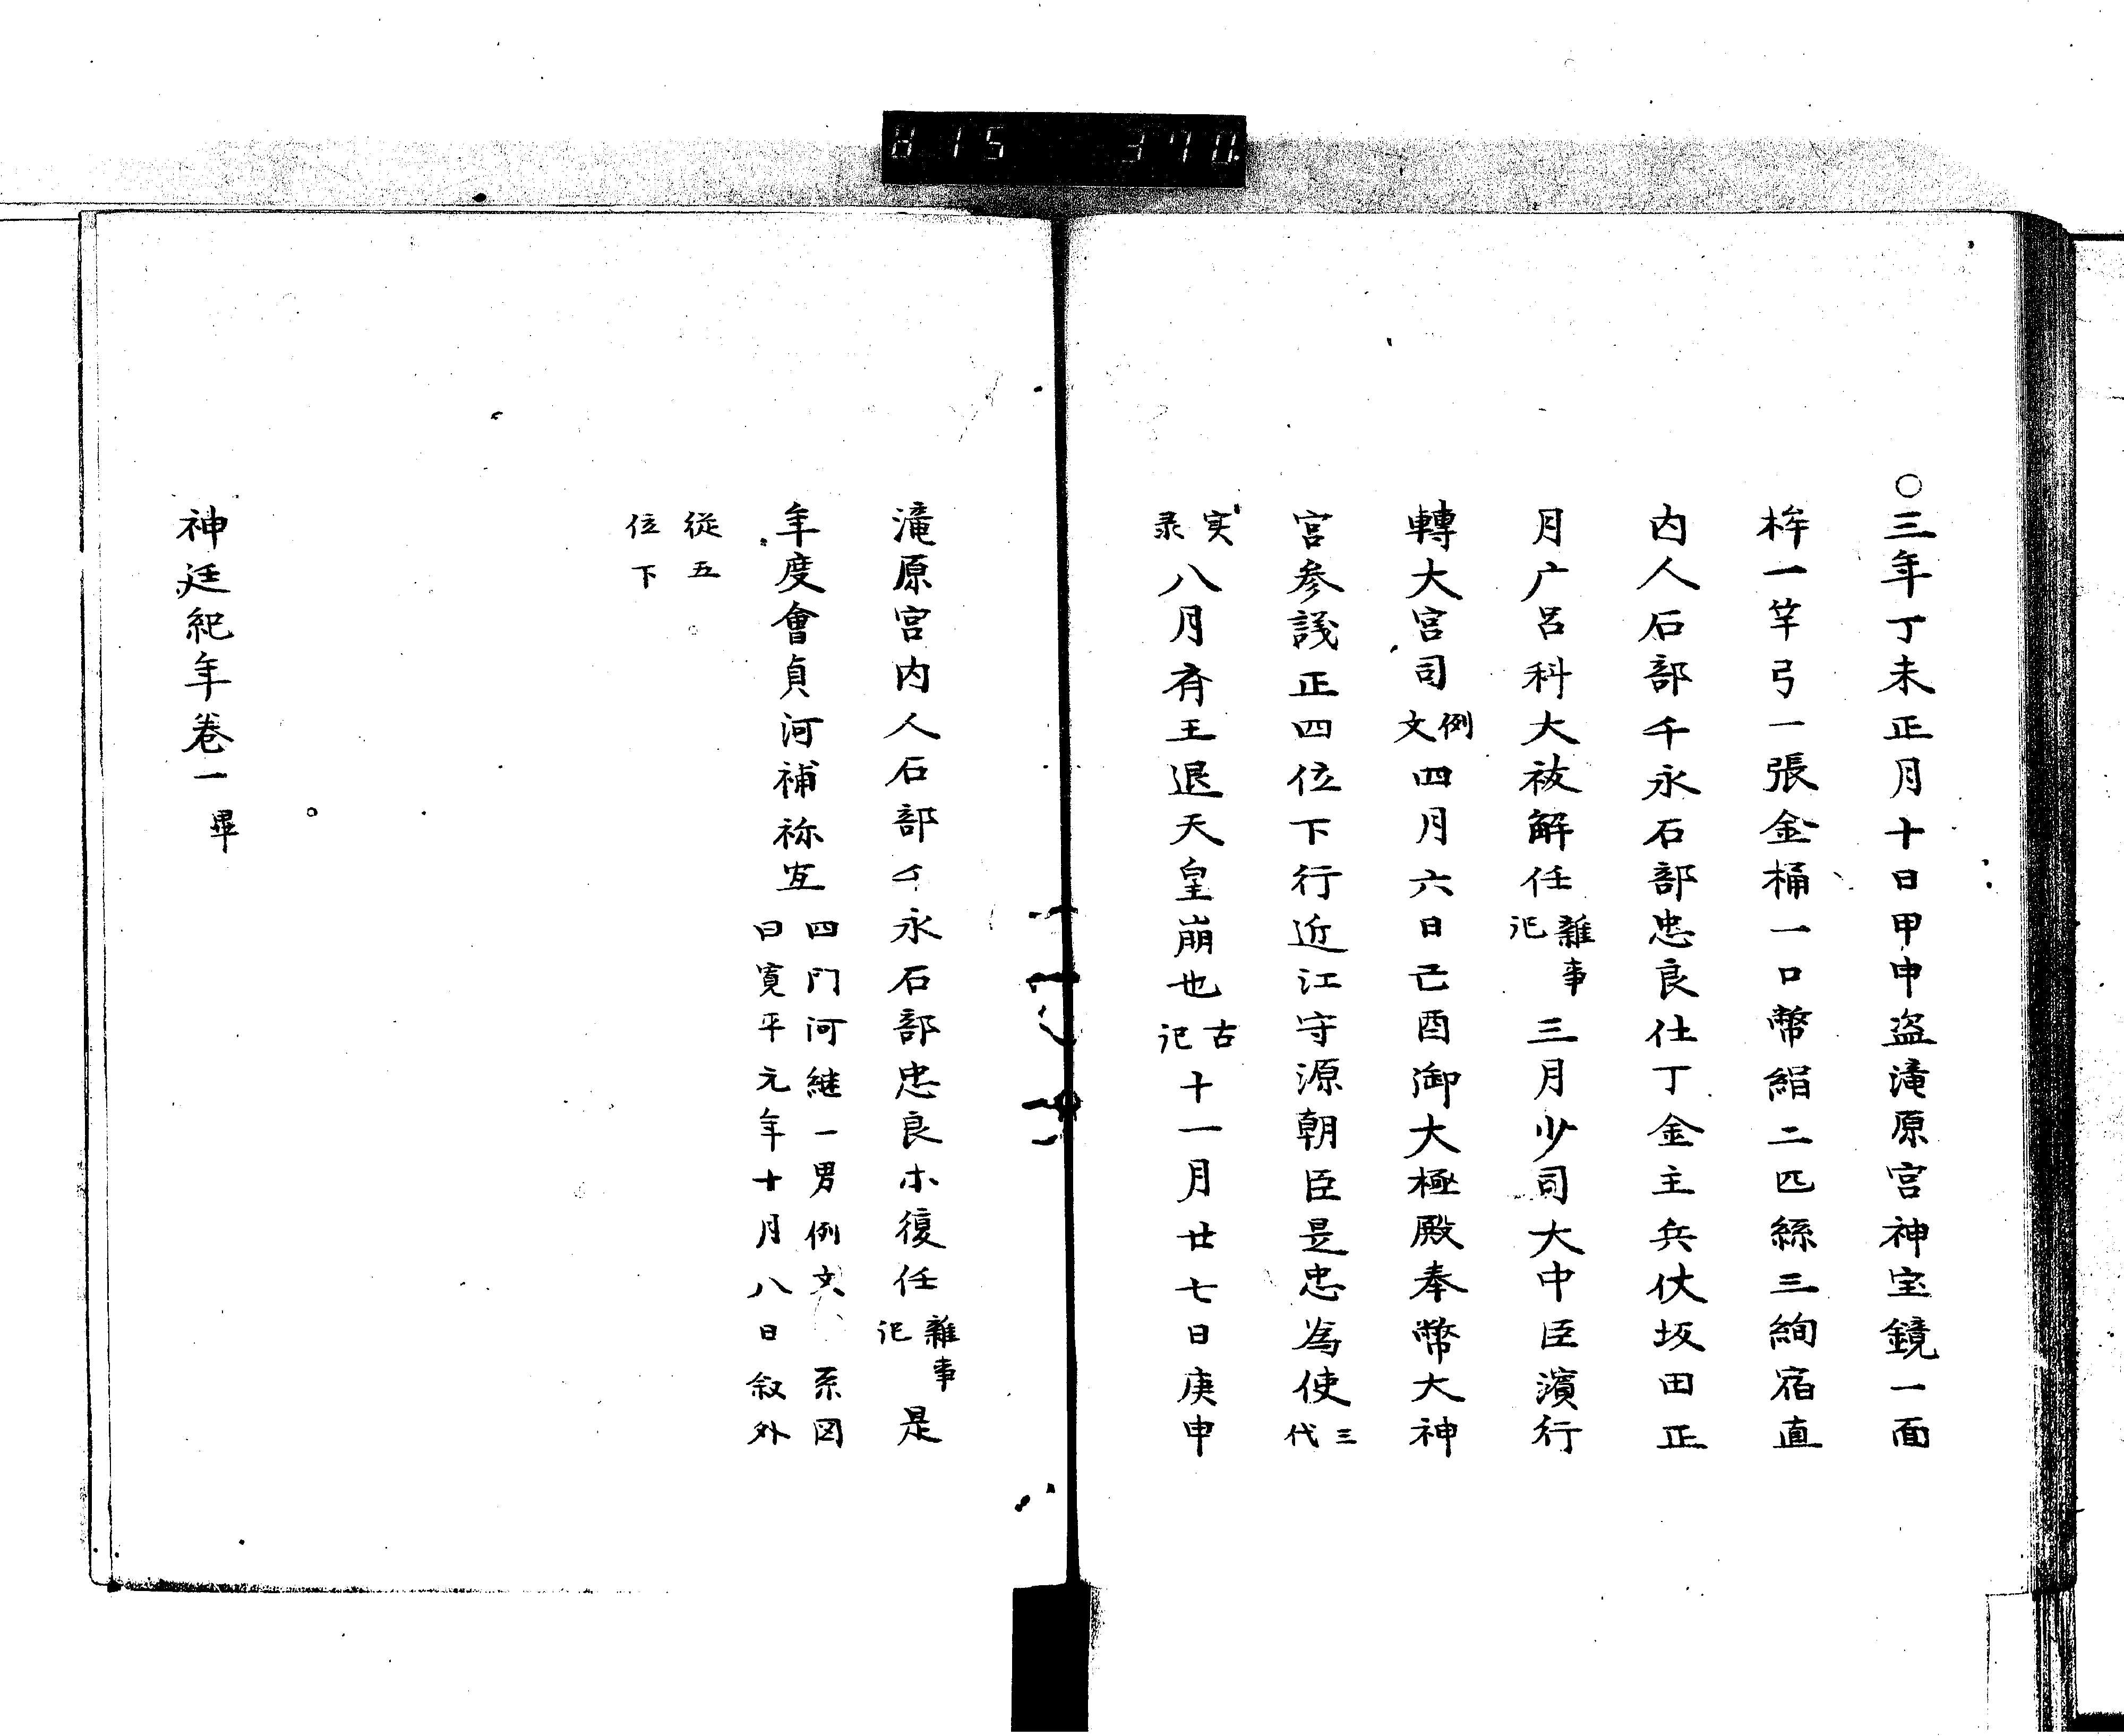 H15 370.
〇三年丁未正月十日甲申盗滝原宮神宝鏡一面
桙一竿弓一張金桶一口幣絹二匹絲三絇宿直
内人石部千永石部忠良仕丁金主兵仗坂田正
月广呂科大祓解任雜事記三月少司大中臣濱行
轉大宮司例文四月六日己酉御大極殿奉幣大神
宮参議正四位下行近江守源朝臣是忠為使三代
実录八月斉王退天皇崩也古記十一月廿七日庚申
滝原宮内人石部千永石部忠良木復任雜事記是
年度會貞河補祢宜四門河継一男例文系図曰寛平元年十月八日叙外
從五位下
神廷紀年卷一畢